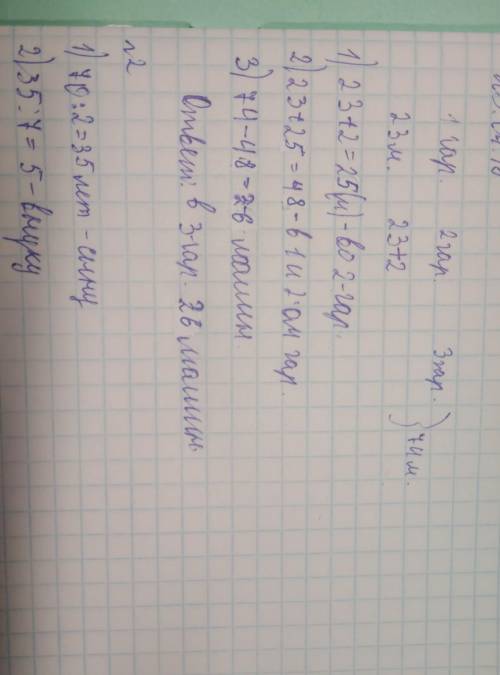 1 гар. 2 гар. 3 гар.
23 м. 23+2 } 74 м.
1) 23+2=25(м)-во 2-гар.
2) 23+25=48-в 1 и 2-ом гар.
3) 74-48=26 машин.
Ответ: в 3-гар. 26 машин.
№2
1) 70:2=35 лет - сыну
2) 35:7=5-внуку